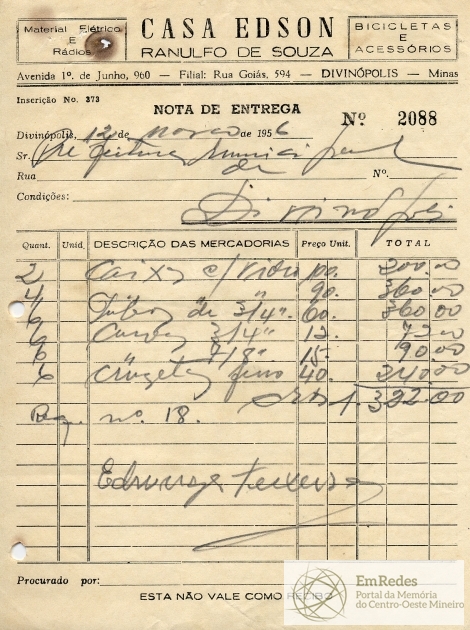 Material Elétrico
E
Rádios
CASA EDSON
RANULFO DE SOUZA
BICICLETAS
E
ACESSÓRIOS
Avenida 1º. de Junho, 960 — Filial: Rua Goiás, 594 — DIVINÓPOLIS — Minas
Inscrição No. 373
NOTA DE ENTREGA
Nº 2088
Divinópolis, 12 de março de 1956
Sr. Prefeitura Municipal
Rua de Nº.
Condições: Divinópolis
Quant. Unid. DESCRIÇÃO DAS MERCADORIAS Preço Unit. TOTAL
2 Caixa c/ vidro 100. 200.00
4 " " 90. 360.00
6 Tubos de 3/4". 60. 360.00
6 Curvas 3/4" 12. 72.00
6 " 7/8" 15. 90.00
6 fino 40. 240.00
1.322.00
Req. nº. 18.
Teixeira
Procurado por:
ESTA NÃO VALE COMO RECIBO
EmRedes
Portal da Memória
do Centro-Oeste Mineiro